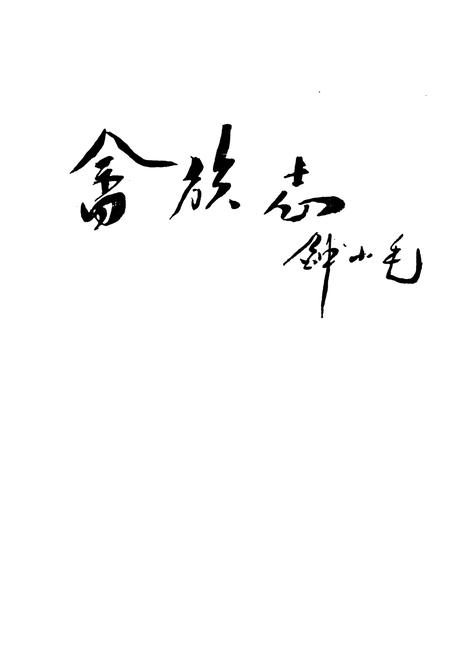 畲族志
钟小毛